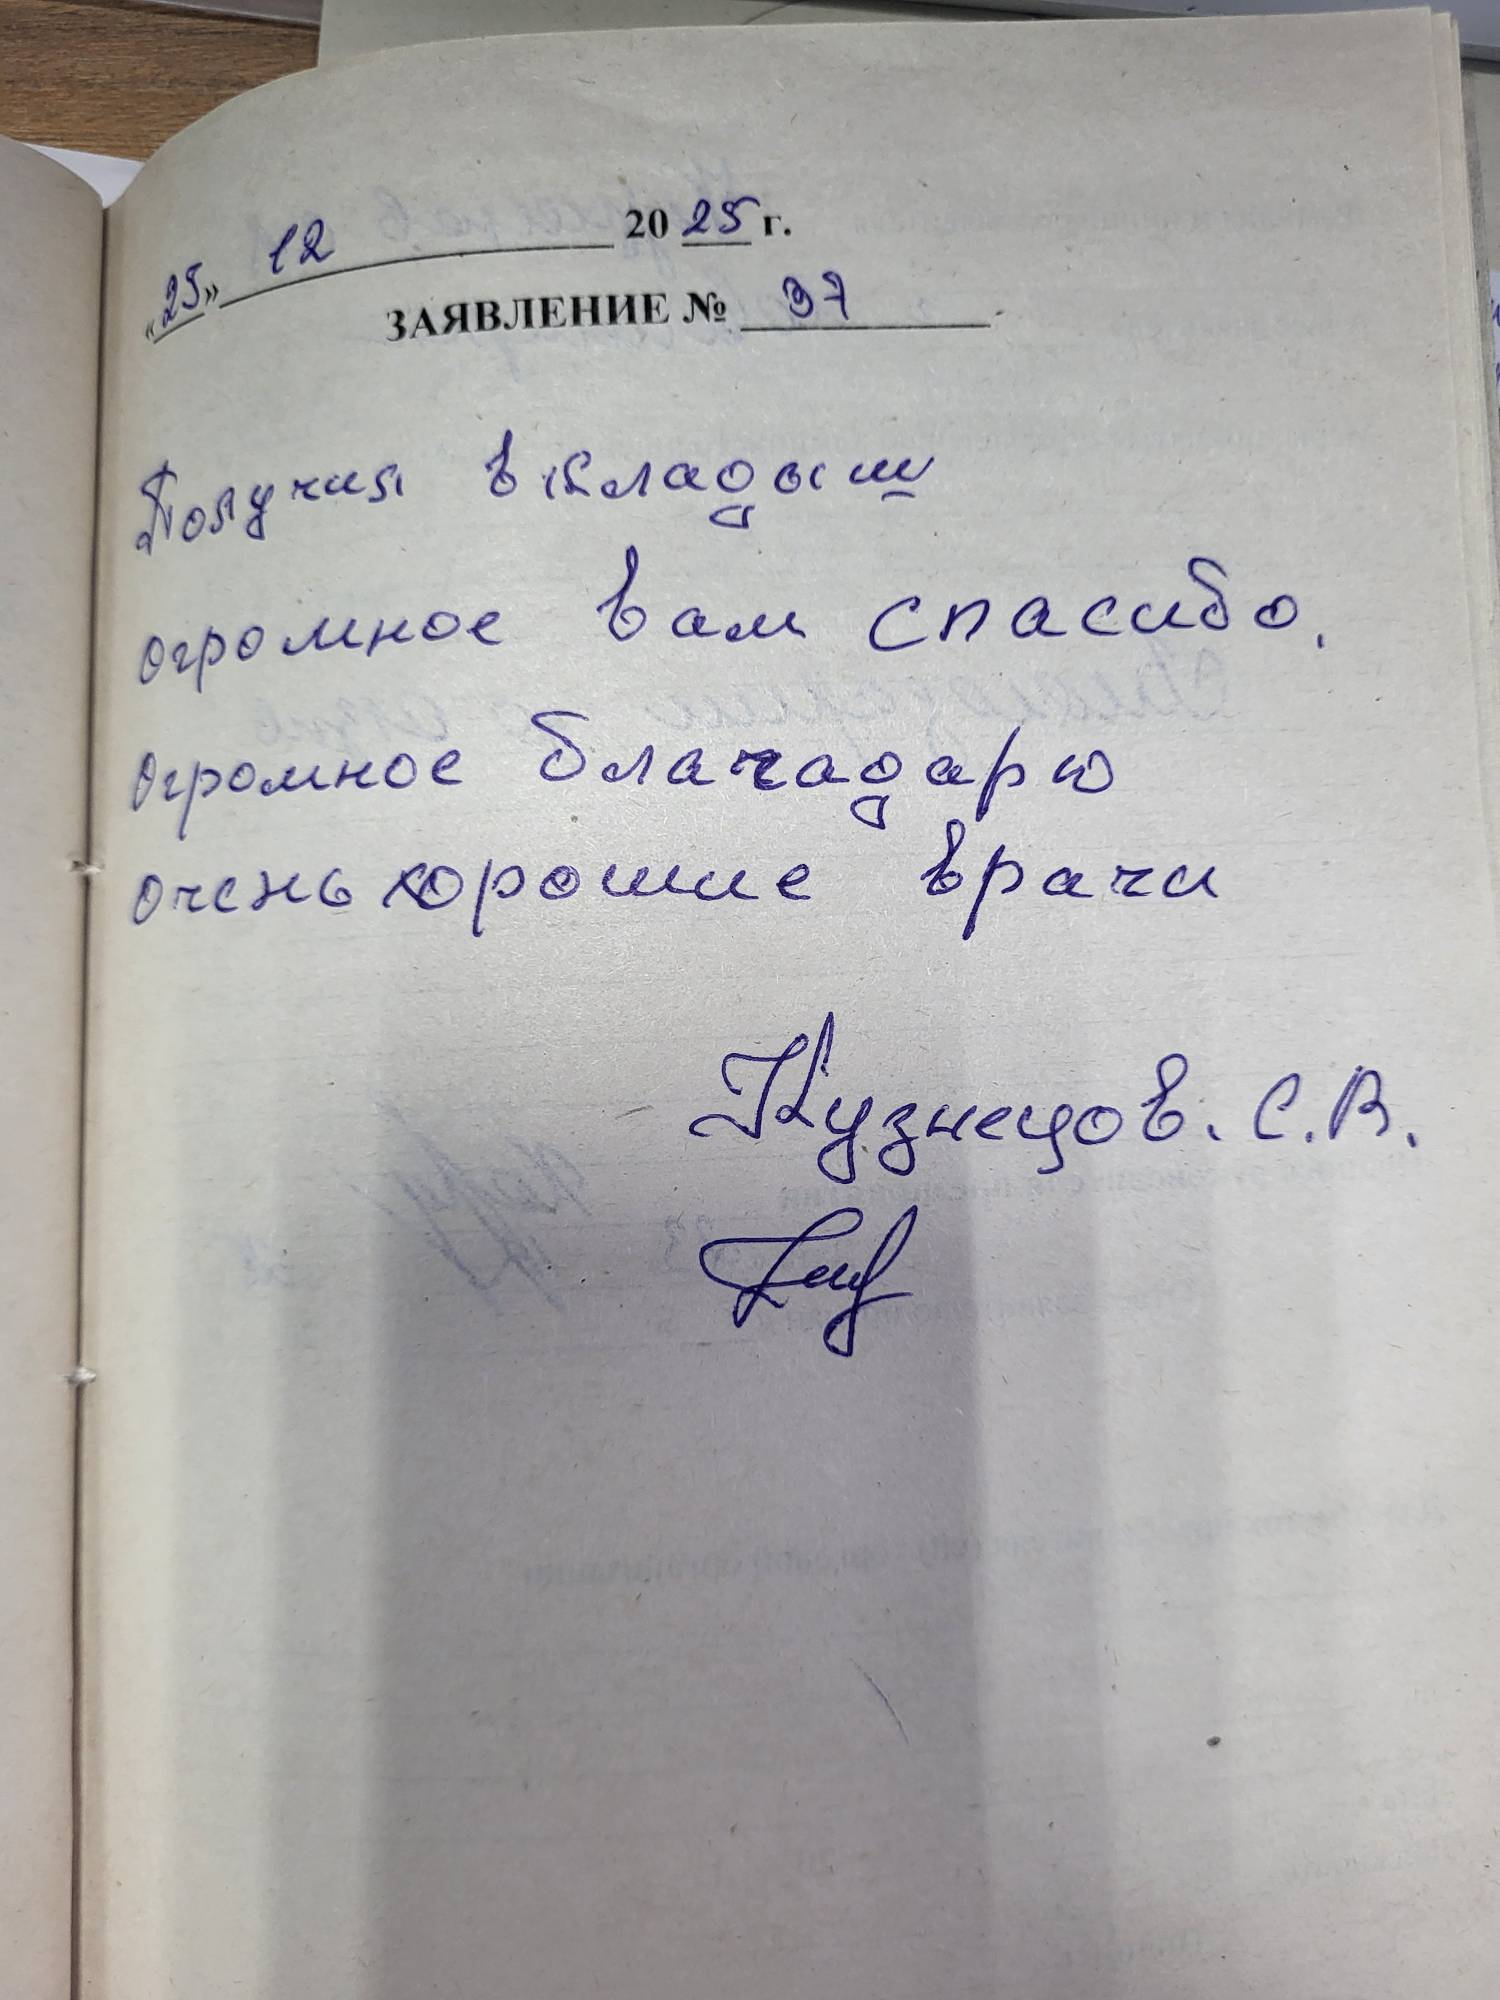 «25» 12 2025 г.
ЗАЯВЛЕНИЕ № 37
Получил вкладыш
огромное вам спасибо.
огромное благадарю
очень хорошие врачи
Кузнецов. С.В.